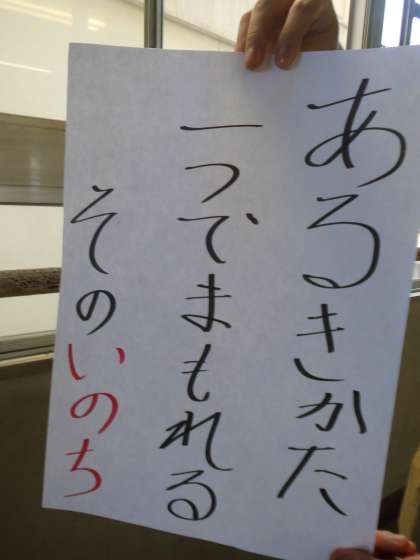 あるきかた
一つでまもれる
そのいのち